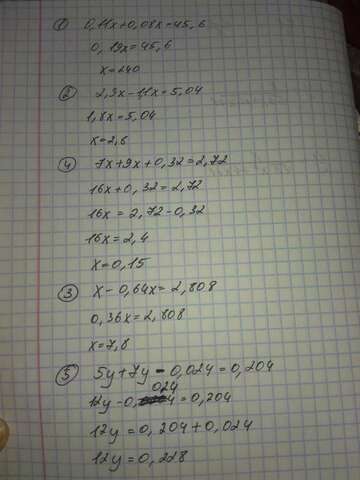 ① 0,11x+0,08x=45,6
0,19x=45,6
x=240
② 2,9x-11x=5,04
1,8x=5,04
x=2,6
④ 7x+9x+0,32=2,72
16x+0,32=2,72
16x=2,72-0,32
16x=2,4
x=0,15
③ x-0,64x=2,808
0,36x=2,808
x=7,8
⑤ 5y+7y-0,024=0,204
12y-0,024=0,204
12y=0,204+0,024
12y=0,228